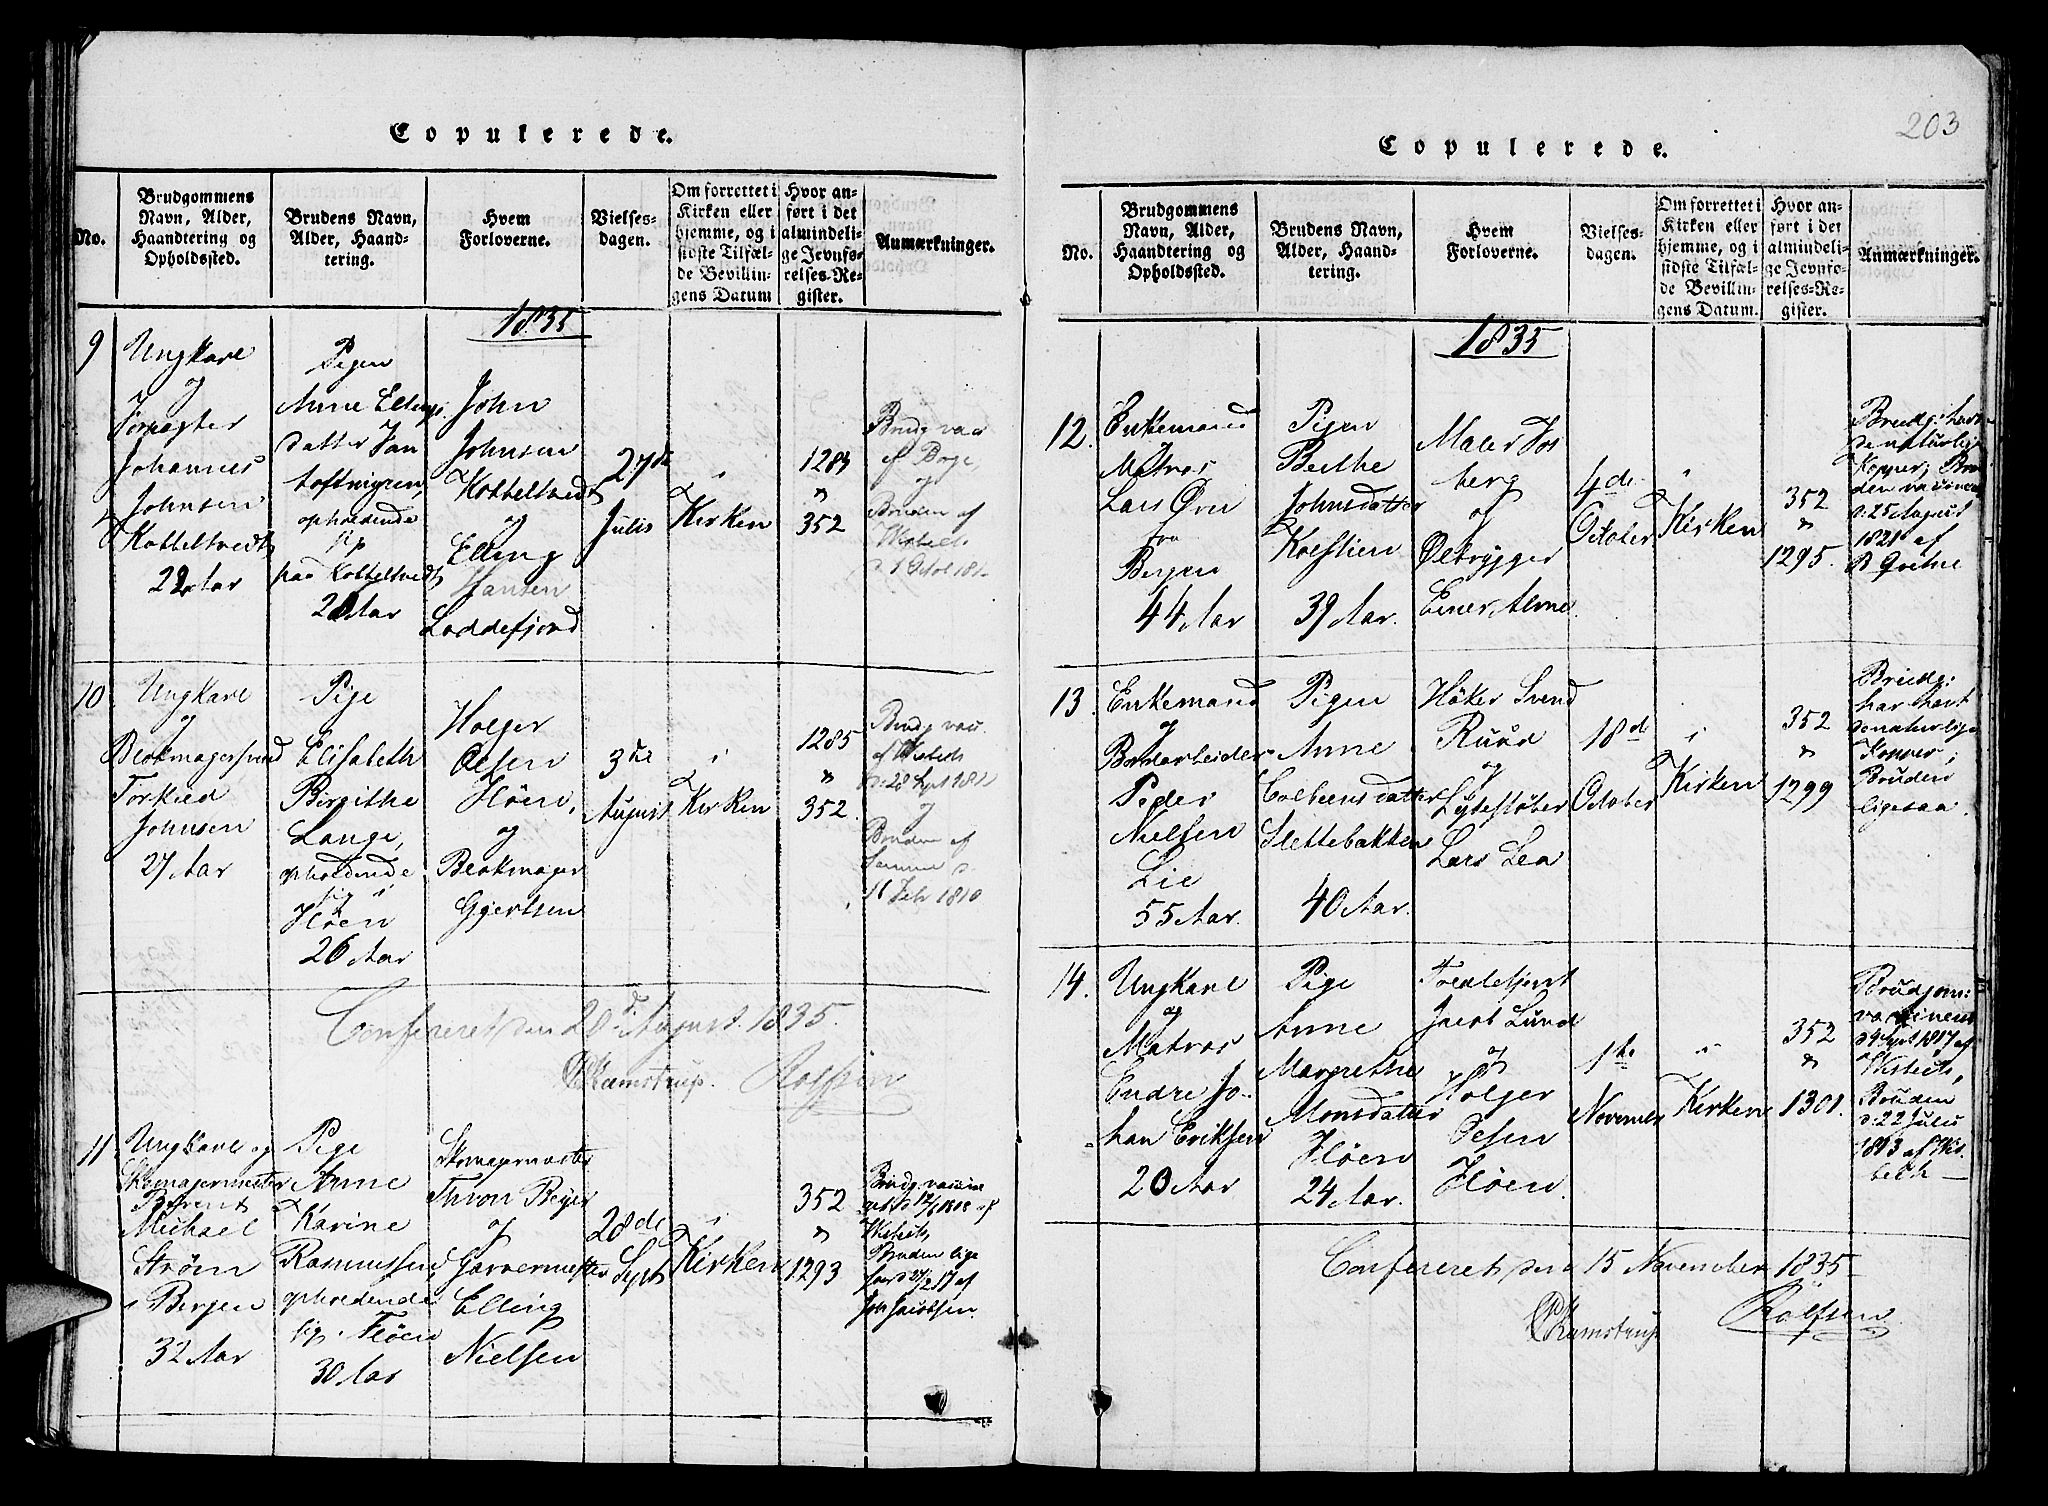 Copulerede.
No.
Brudgommens
Navn, Alder,
Haandtering og
Opholdssted.
Brudens Navn,
Alder, Haand-
tering.
Hvem
Forloverne.
Vielses-
dagen.
Om forrettet i
Kirken eller
hjemme, og i
sidste Tilfæl-
de Bevillin-
gens Datum
Hvor an-
ført i det
almindeli-
ge Jevnfø-
relses-Re-
gister.
Anmærkninger.
1835
9
Ungkarl
og
Johannes
Johnsen
Kobbeltvedt
22 Aar
Pigen
Anne Ellings
datter
opholdende
sig
paa Kobbeltvedt
Aar
John
Johnsen
Kobbeltvedt
og
Elling
Hansen
Loddefjord
27de
Julii
i
Kirken
1283
"
352
Brudg. vac
af
og
Bruden af
10
Ungkarl
og
Blokmagersvend
Torkild
Johnsen
27 Aar
Pige
Elisabeth
Birgithe
Lange,
opholdende
sig i
Fløen
26 Aar
Holger
Olsen
Fløen,
og
Blokmager
Gjertsen
3die
August
i
Kirken
1285
"
352.
Brudg. vacc.
af
d: 28 Sept 181
og
Bruden af
Samme d.
11 Feb 1810
Confereret den 20d. August. 1835.
Ramstrup. Rolfsen
11
Ungkarl og
Skomagermester
Berent
Michael
Strøm
i Bergen
32 Aar
Pige
Anne
Karine
Rasmussen,
opholdende
sig i Fløen
30 Aar
Skomagermester
Thron Beyer
og
Garvermester
Elling
Nielsen
28de
Sept
i
Kirken
352
"
1293
Brudg. vaccine
af
Bruden lige
af
Joh Jacobsen.
203
Copulerede.
No.
Brudgommens
Navn, Alder,
Haandtering og
Opholdssted.
Brudens Navn,
Alder, Haand-
tering.
Hvem
Forloverne.
Vielses-
dagen.
Om forrettet i
Kirken eller
hjemme, og i
sidste Tilfæl-
de Bevillin-
gens Datum.
Hvor an-
ført i det
almindeli-
ge Jevnfø-
relses-Re-
gister.
Anmærkninger.
1835
12.
Enkemand
og
Matros
Lars
fra
Bergen
44 Aar
Pigen
Berthe
Johnsdatter
Kolstien
39 Aar.
Maler Vos
berg
og
Einer Arne
4de
October
i
Kirken
352
"
1295.
Brudg: hav
de naturlige
Kopper; Bru
den vaccineret
d: 25 August
1821 af
13.
Enkemand
og
Bordarbeider
Peder
Nielsen
Lie
55 Aar.
Pigen
Anne
Colbensdatter
Slettebakken
40 Aar.
Høker Svend
Ruud
og
Lygtestøber
Lars Lea
18de
October
i
Kirken
352
"
1299
Brudg:
har havt
de naturlige
Kopper;
Bruden
ligesaa.
14.
Ungkarl
og
Matros
Endre Jo-
han Eriksen
20 Aar
Pige
Anne
Margrethe
Monsdatter
Fløen
24 Aar.
Jacob Lund
og
Holger
Olsen
Fløen.
1ste
November
i
Kirken
352
"
1301.
Brudgom:
vaccineret
d 9 Sept 1817 af
Bruden
d: 22 Julii
1813 af
Confereret den 15 November 1835
Ramstrup Rolfsen